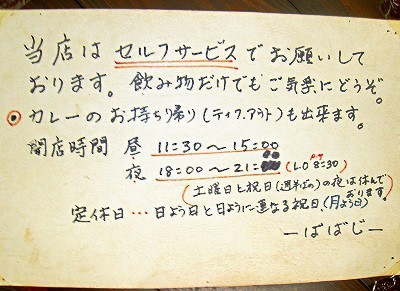 当店は セルフサービスで お願いして
おります。飲み物だけでもご気楽にどうぞ。
カレーの お持ち帰り(テイクアウト)も出来ます。
開店時間 昼 11:30〜15:00
夜 18:00〜21: (L.O 8:30)
(土曜日と祝日(週半ばの)の夜は休んで
おります。)
定休日…日よう日と日ように重なる祝日(月よう日)
ーばばじー